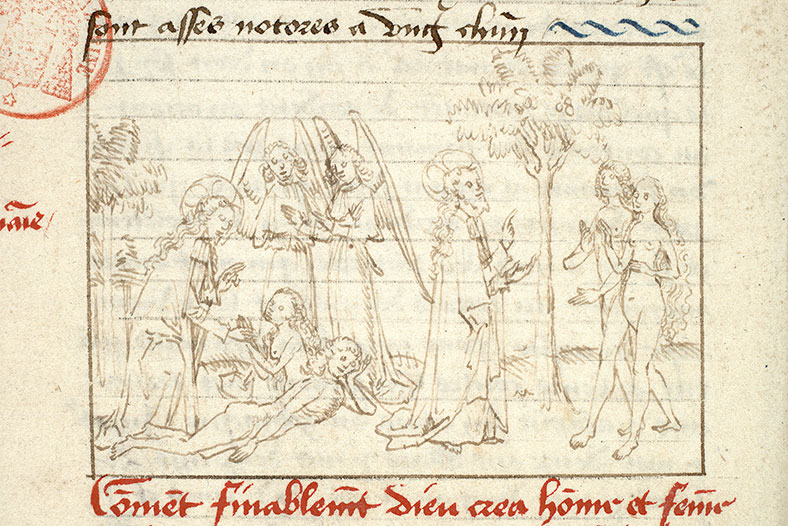 sont asses notores a vng chun
Com̄ent finablem̄t dieu crea hōme et fem̄e